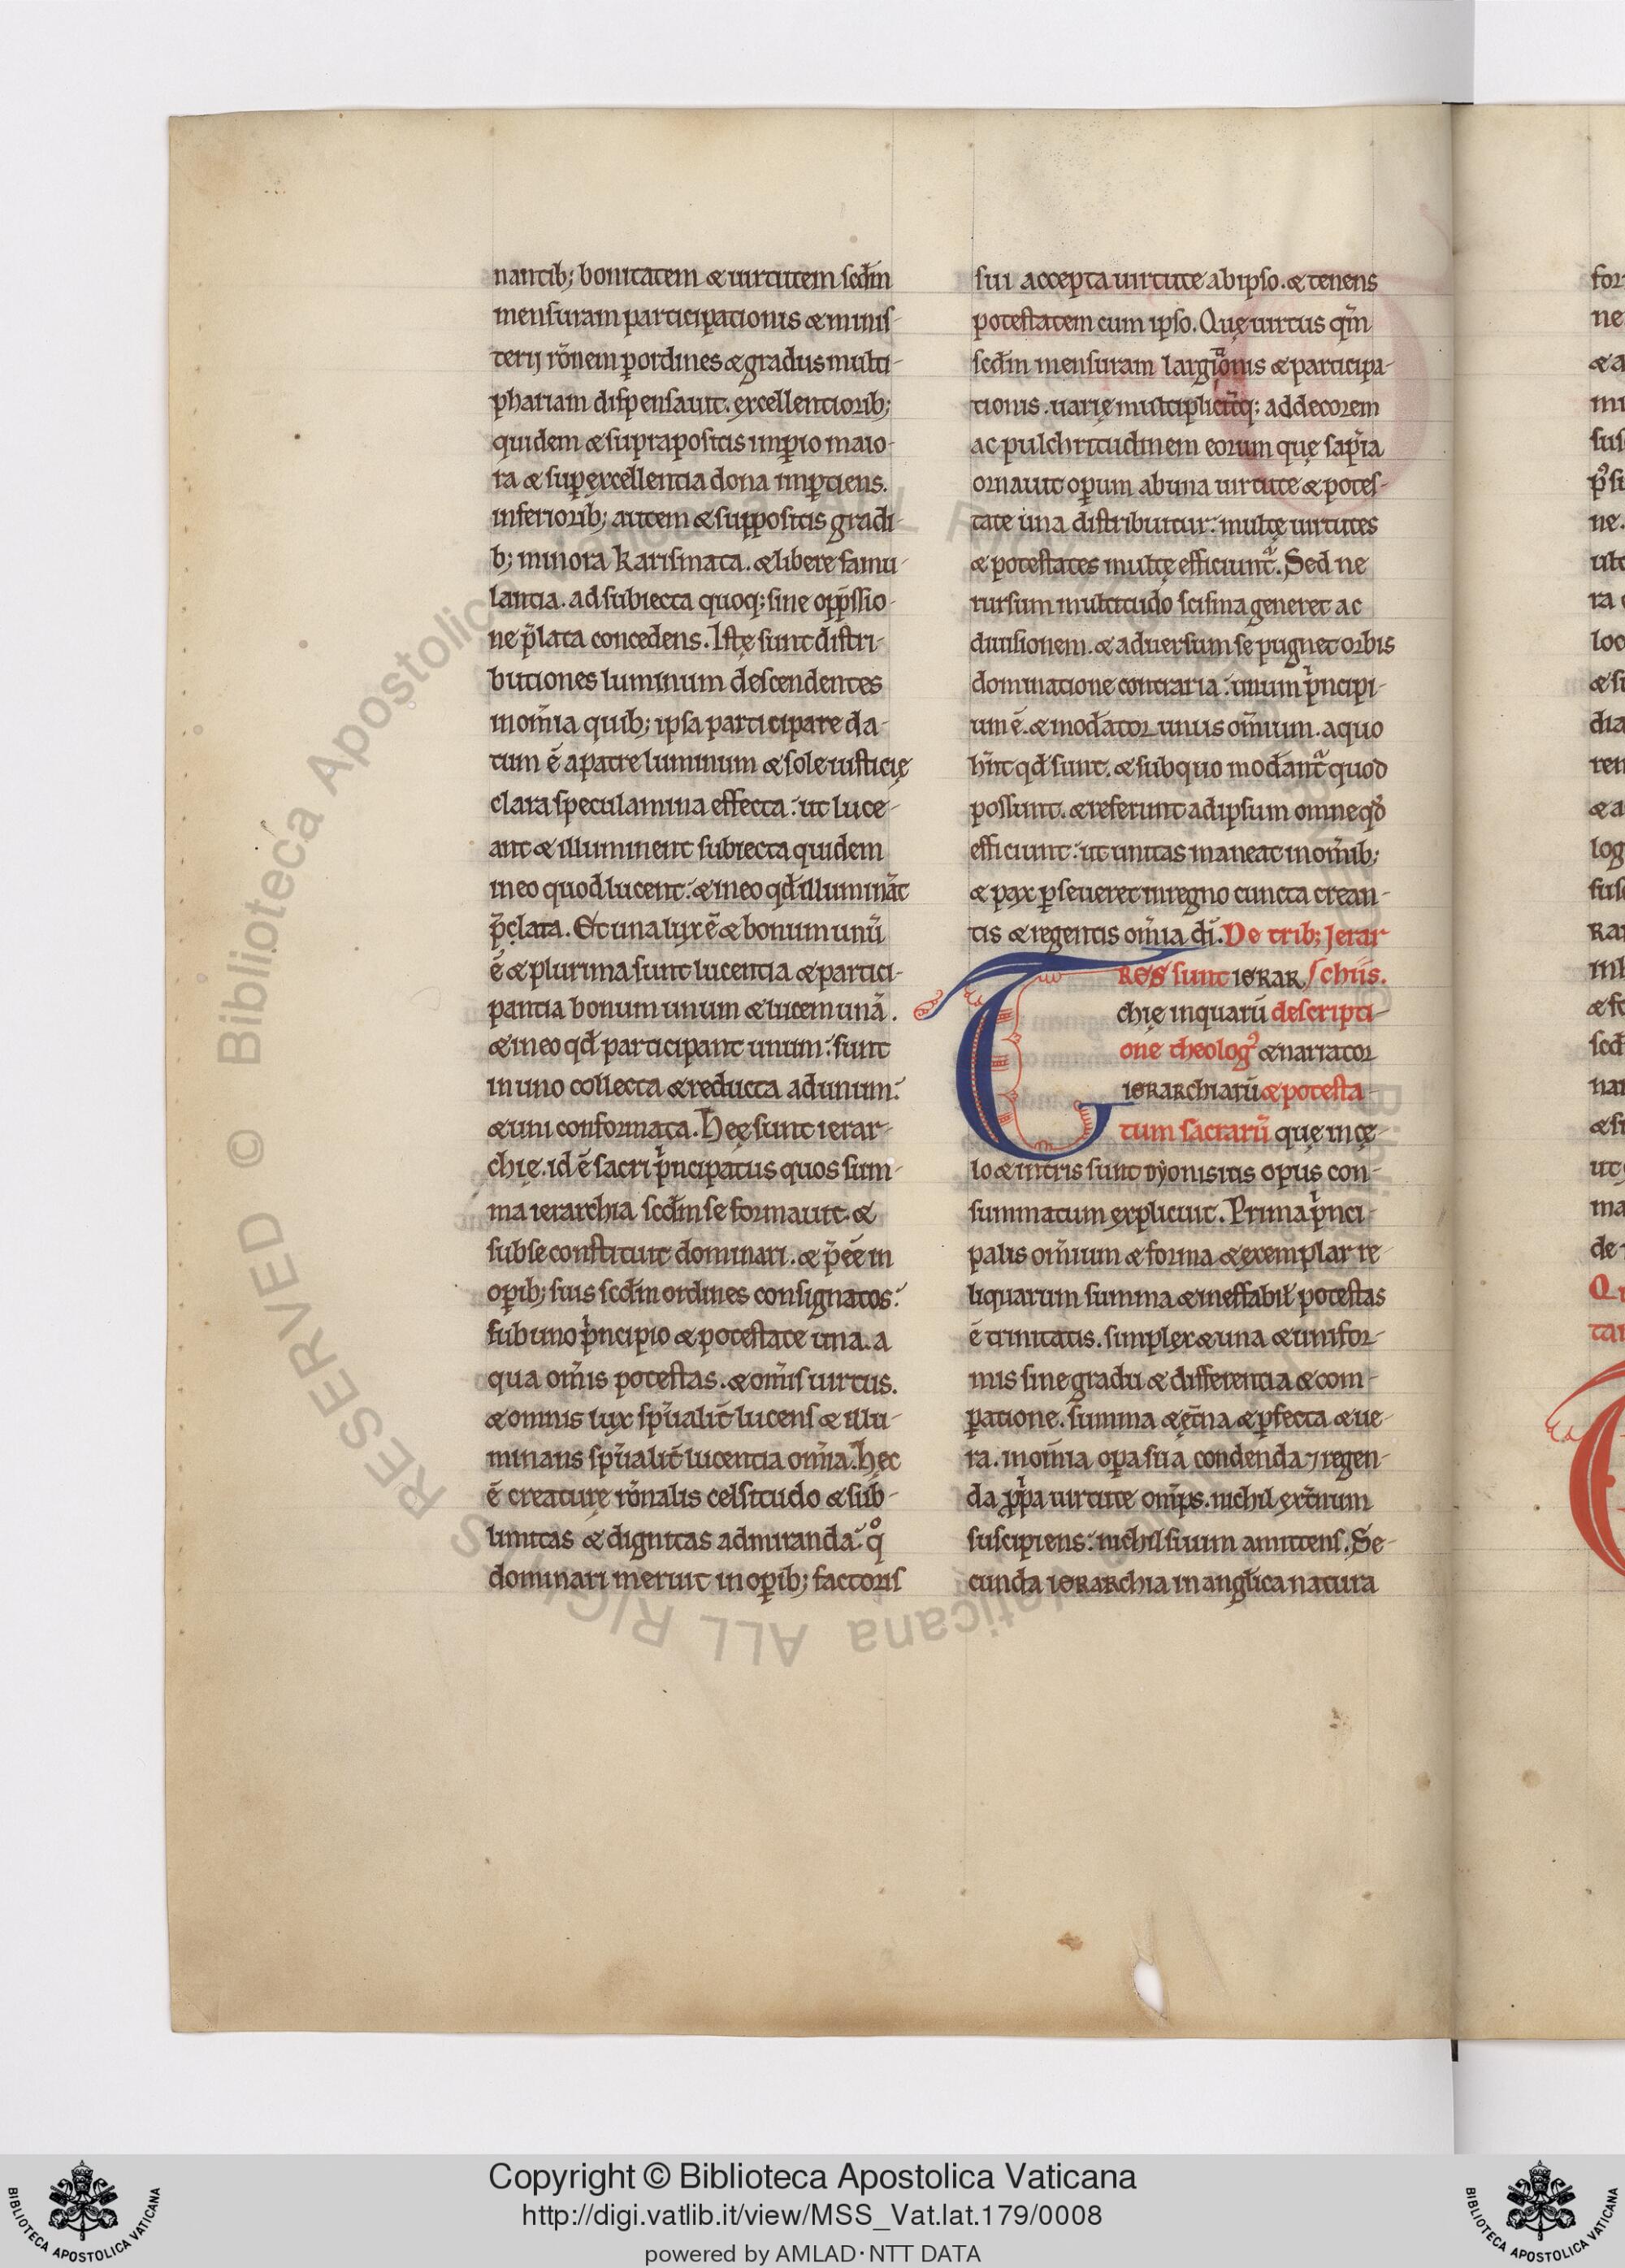 nantib; bonitatem & uirtutem scd̄m
mensuram participationis & minis-
terij rōnem ꝑ ordines & gradus multi-
phariam dispensauit. excellentiorib;
quidem & suprapositis imꝑio maio-
ra & suꝑexcellentia dona imꝑtiens.
inferiorib; autem & suppositis gradi-
b; minora karismata. & libere famu-
lantia. ad subiecta quoq; sine opp̄ssio-
ne p̄lata concedens. Istę sunt distri-
butiones luminum descendentes
in om̄ia quib; ipsa participare da-
tum ē a patre luminum & sole iusticię
clara speculamina effecta: ut luce-
ant & illuminent subiecta quidem
in eo quod lucent: & in eo qd̄ illumināt
p̄clata. Et una lux ē & bonum unū
ē & plurima sunt lucentia & partici-
pantia bonum unum & lucem unā.
& in eo qd̄ participant unum: sunt
in uno collecta & reducta ad unum:
& uni conformata. Heę sunt ierar-
chię. id ē sacri pͥncipatus quos sum-
ma ierarchia scd̄m se formauit. &
sub se constituit dominari. & p̄ eē in
oꝑib; suis scd̄m ordines consignatos:
sub uno pͥncipio & potestate una. a
qua om̄is potestas. & om̄is uirtus.
& omnis lux spūalit̄ lucens & illu-
minans spūalit̄ lucentia om̄ia. Hęc
ē creaturę rōnalis celsitudo & sub-
limitas & dignitas admiranda: qͦ
dominari meruit in oꝑib; factoris
sui accepta uirtute ab ipso. & tenens
potestatem cum ipso. Quę uirtus qm̄
scd̄m mensuram largitionis & participa-
tionis. uarię multiplicit̄q; ad decorem
ac pulchritudinem eorum quę sapīa
ornauit oꝑum ab una uirtute & potes-
tate una distribuitur: multę uirtutes
& potestates multę efficiunt̄. Sed ne
rursum multitudo scisma generet ac
diuisionem. & aduersum se pugnet orbis
dominatione contraria: unum pͥncipi-
um ē. & mod̄ator unus om̄ium. a quo
hn̄t qd̄ sunt. & sub quo mod̄ant̄ quod
possunt. & referunt ad ipsum omne qd̄
efficiunt: ut unitas maneat in om̄ib;
& pax ꝑseueret in regno cuncta crean-
tis & regentis om̄ia dī. De trib; Jerar
TRES sunt IERAR chiis.
chię in quarū descripti-
one theologꝰ & narrator
IERARchiarū & potesta-
tum sacrarū quę in cę-
lo & in tr̄is sunt dẏonisius opus con-
summatum explicuit. Prima pͥnci-
palis om̄ium & forma & exemplar re-
liquarum summa & ineffabil̄ potestas
ē trinitatis. simplex & una & unifor-
mis sine gradu & differentia & com-
ꝑatione. summa & ęt̄na & ꝑfecta & ue-
ra. in om̄ia oꝑa sua condenda ⁊ regen-
da ꝓpͥa uirtute om̄ps. nichil ext̄num
suscipiens: nichil suum amittens. Se-
cunda IERARchia in anglica natura
Copyright © Biblioteca Apostolica Vaticana
http://digi.vatlib.it/view/MSS_Vat.lat.179/0008
powered by AMLAD·NTT DATA
BIBLIOTECA APOSTOLICA VATICANA
BIBLIOTECA APOSTOLICA VATICANA